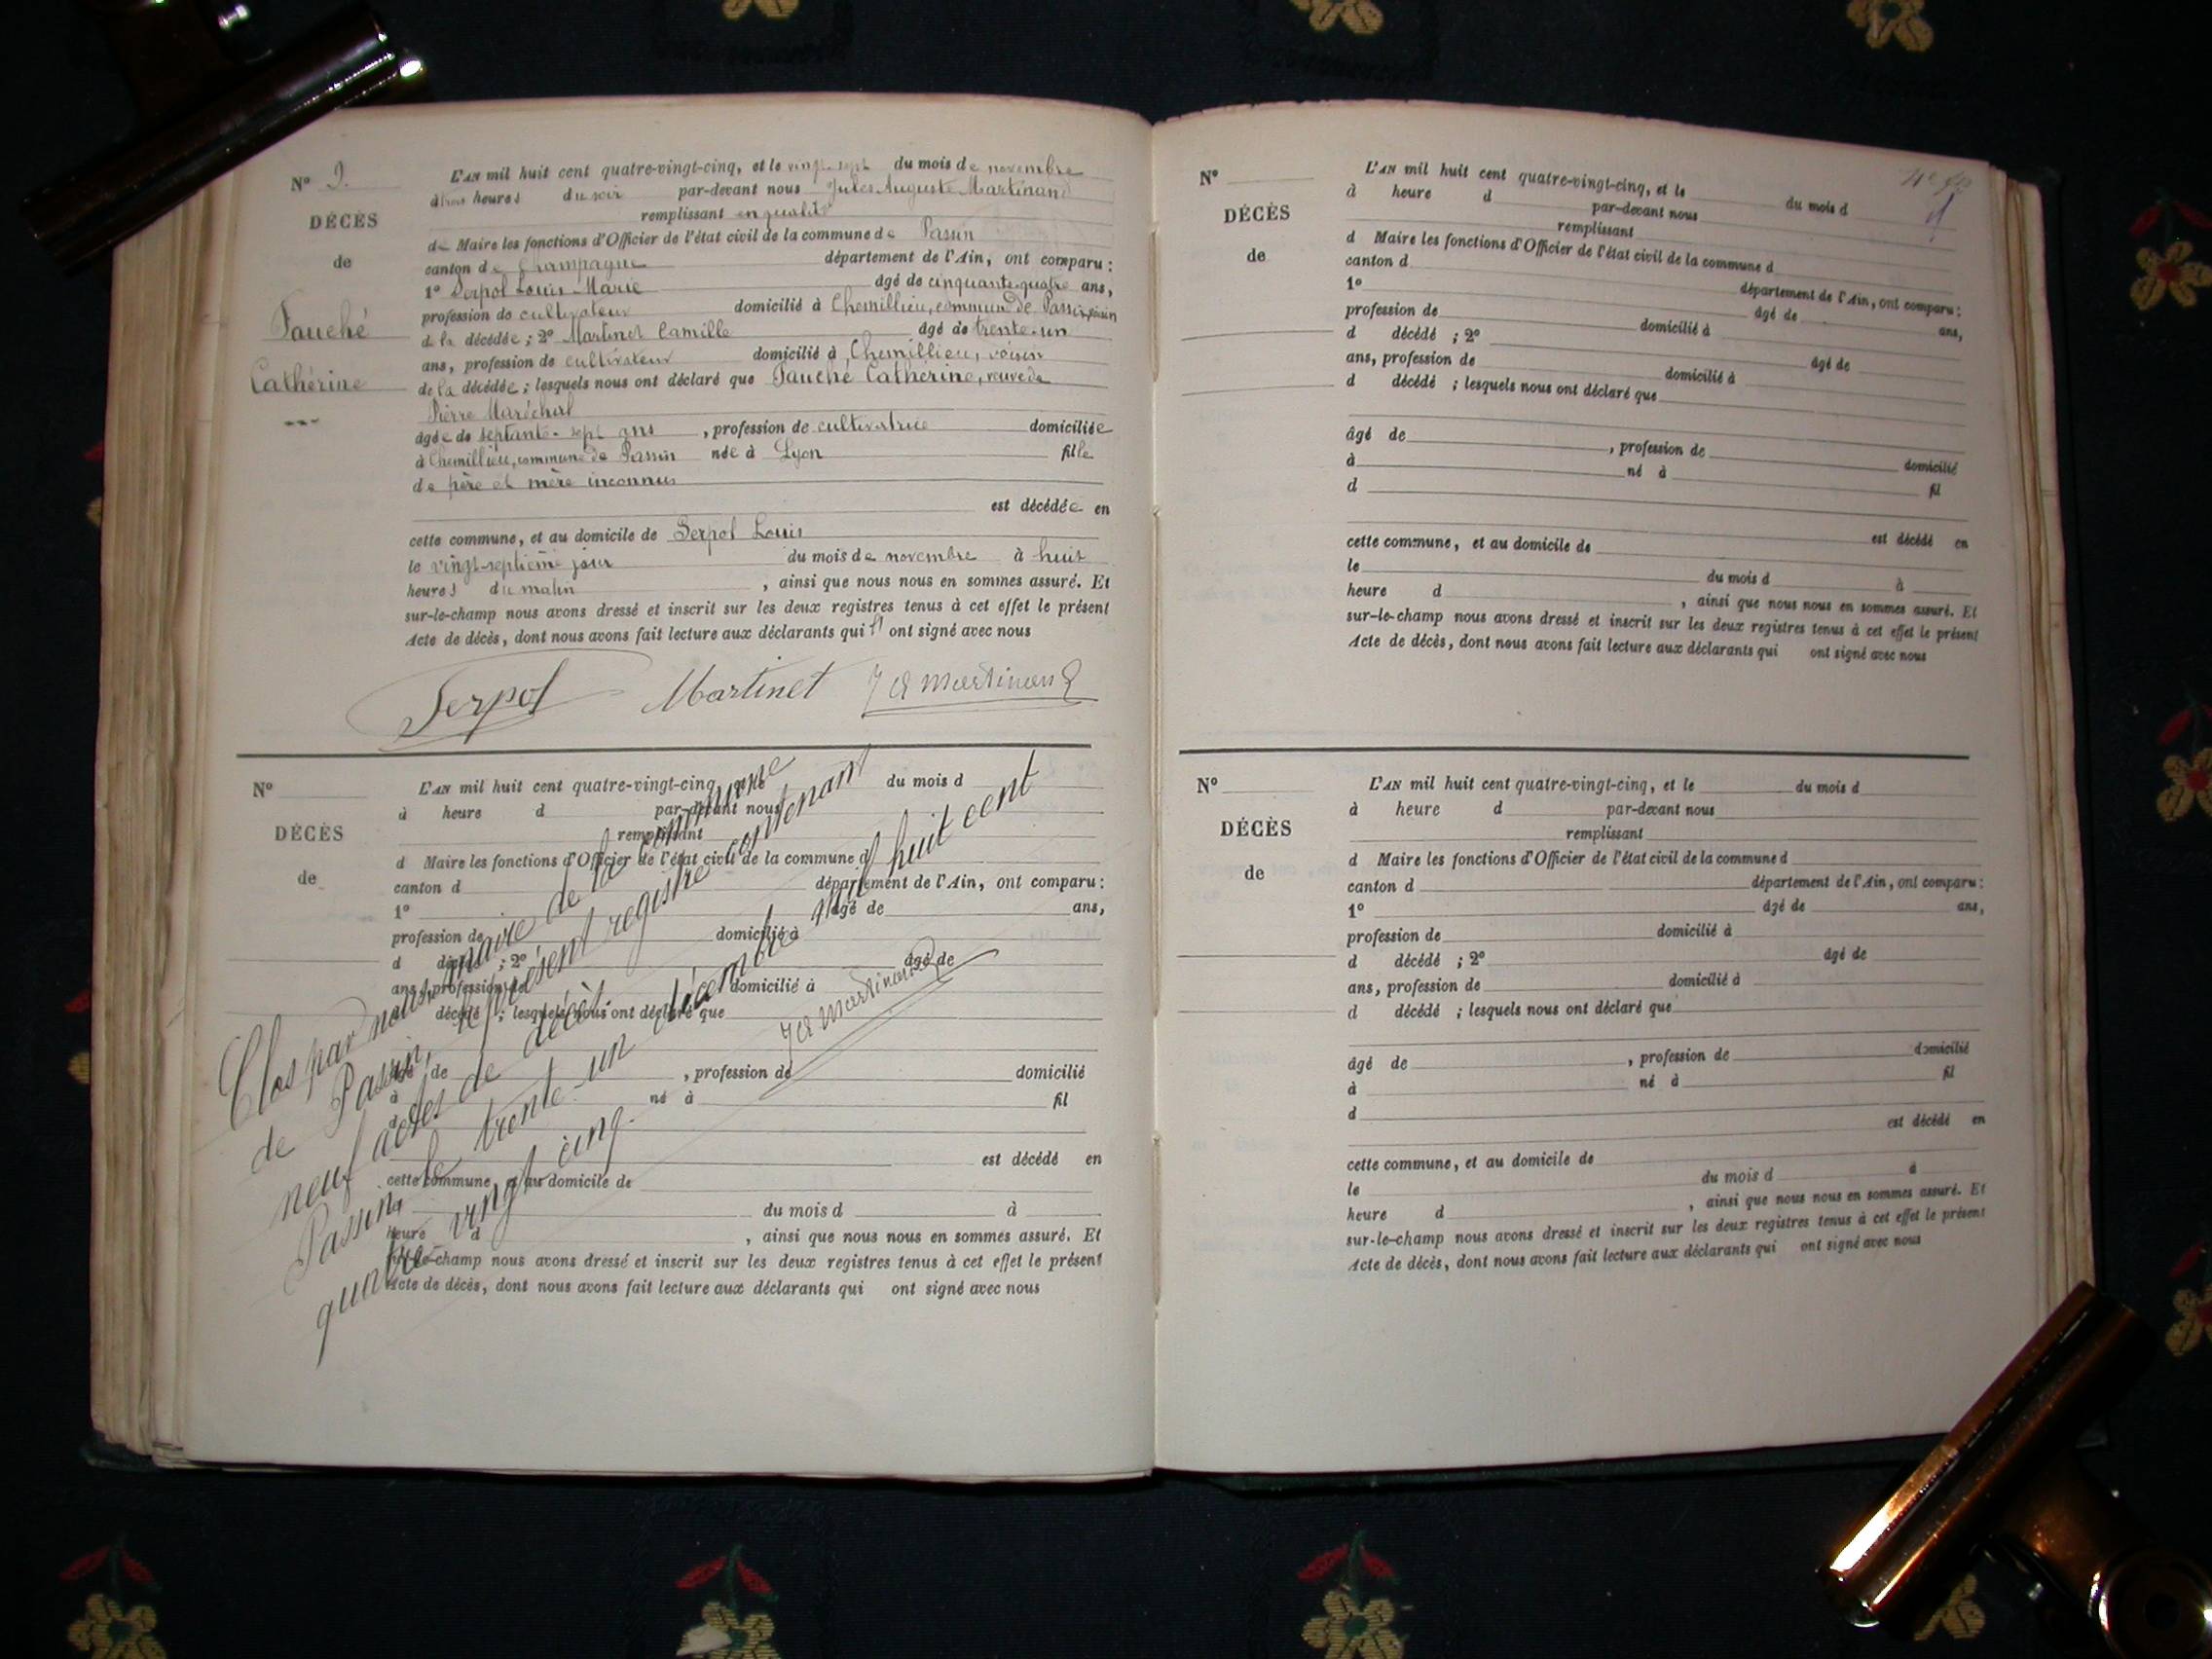 N° 9.
DÉCÈS
de
Fauché
Catherine
L'AN mil huit cent quatre-vingt-cinq, et le vingt-sept du mois de novembre
à trois heures du soir par-devant nous Jules Auguste Martinand
remplissant en qualité
de Maire les fonctions d'Officier de l'état civil de la commune de Passin
canton de Champagne département de l'Ain, ont comparu :
1° Serpol Louis-Marie âgé de cinquante-quatre ans,
profession de cultivateur domicilié à Chemillieu, commune de Passin, voisin
de la décédée ; 2° Martinet Camille âgé de trente-un
ans, profession de cultivateur domicilié à Chemillieu, voisin
de la décédée ; lesquels nous ont déclaré que Fauché Catherine, veuve de
Pierre Maréchal
âgée de septante-sept ans , profession de cultivatrice domiciliée
à Chemillieu, commune de Passin née à Lyon fille
de père et mère inconnus
est décédée en
cette commune, et au domicile de Serpol Louis
le vingt-septième jour du mois de novembre à huit
heures du matin , ainsi que nous nous en sommes assuré. Et
sur-le-champ nous avons dressé et inscrit sur les deux registres tenus à cet effet le présent
Acte de décès, dont nous avons fait lecture aux déclarants qui ont signé avec nous
Serpol Martinet J A Martinand
N°
DÉCÈS
de
L'AN mil huit cent quatre-vingt-cinq, et le du mois d
à heure d par-devant nous
remplissant
d Maire les fonctions d'Officier de l'état civil de la commune d
canton d département de l'Ain, ont comparu :
1° âgé de ans,
profession de domicilié à
d décédé ; 2° âgé de
ans, profession de domicilié à
d décédé ; lesquels nous ont déclaré que
âgé de , profession de domicilié
à né à fil
d
est décédé en
cette commune, et au domicile de
le du mois d à
heure d , ainsi que nous nous en sommes assuré. Et
sur-le-champ nous avons dressé et inscrit sur les deux registres tenus à cet effet le présent
Acte de décès, dont nous avons fait lecture aux déclarants qui ont signé avec nous
Clos par nous, maire de la commune
de Passin, le présent registre contenant
neuf actes de décès.
Passin, le trente-un décembre mil huit cent
quatre-vingt cinq.
J A Martinand
N°
DÉCÈS
de
L'AN mil huit cent quatre-vingt-cinq, et le du mois d
à heure d par-devant nous
remplissant
d Maire les fonctions d'Officier de l'état civil de la commune d
canton d département de l'Ain, ont comparu :
1° âgé de ans,
profession de domicilié à
d décédé ; 2° âgé de
ans, profession de domicilié à
d décédé ; lesquels nous ont déclaré que
âgé de , profession de domicilié
à né à fil
d
est décédé en
cette commune, et au domicile de
le du mois d à
heure d , ainsi que nous nous en sommes assuré. Et
sur-le-champ nous avons dressé et inscrit sur les deux registres tenus à cet effet le présent
Acte de décès, dont nous avons fait lecture aux déclarants qui ont signé avec nous
N°
DÉCÈS
de
L'AN mil huit cent quatre-vingt-cinq, et le du mois d
à heure d par-devant nous
remplissant
d Maire les fonctions d'Officier de l'état civil de la commune d
canton d département de l'Ain, ont comparu :
1° âgé de ans,
profession de domicilié à
d décédé ; 2° âgé de
ans, profession de domicilié à
d décédé ; lesquels nous ont déclaré que
âgé de , profession de domicilié
à né à fil
d
est décédé en
cette commune, et au domicile de
le du mois d à
heure d , ainsi que nous nous en sommes assuré. Et
sur-le-champ nous avons dressé et inscrit sur les deux registres tenus à cet effet le présent
Acte de décès, dont nous avons fait lecture aux déclarants qui ont signé avec nous